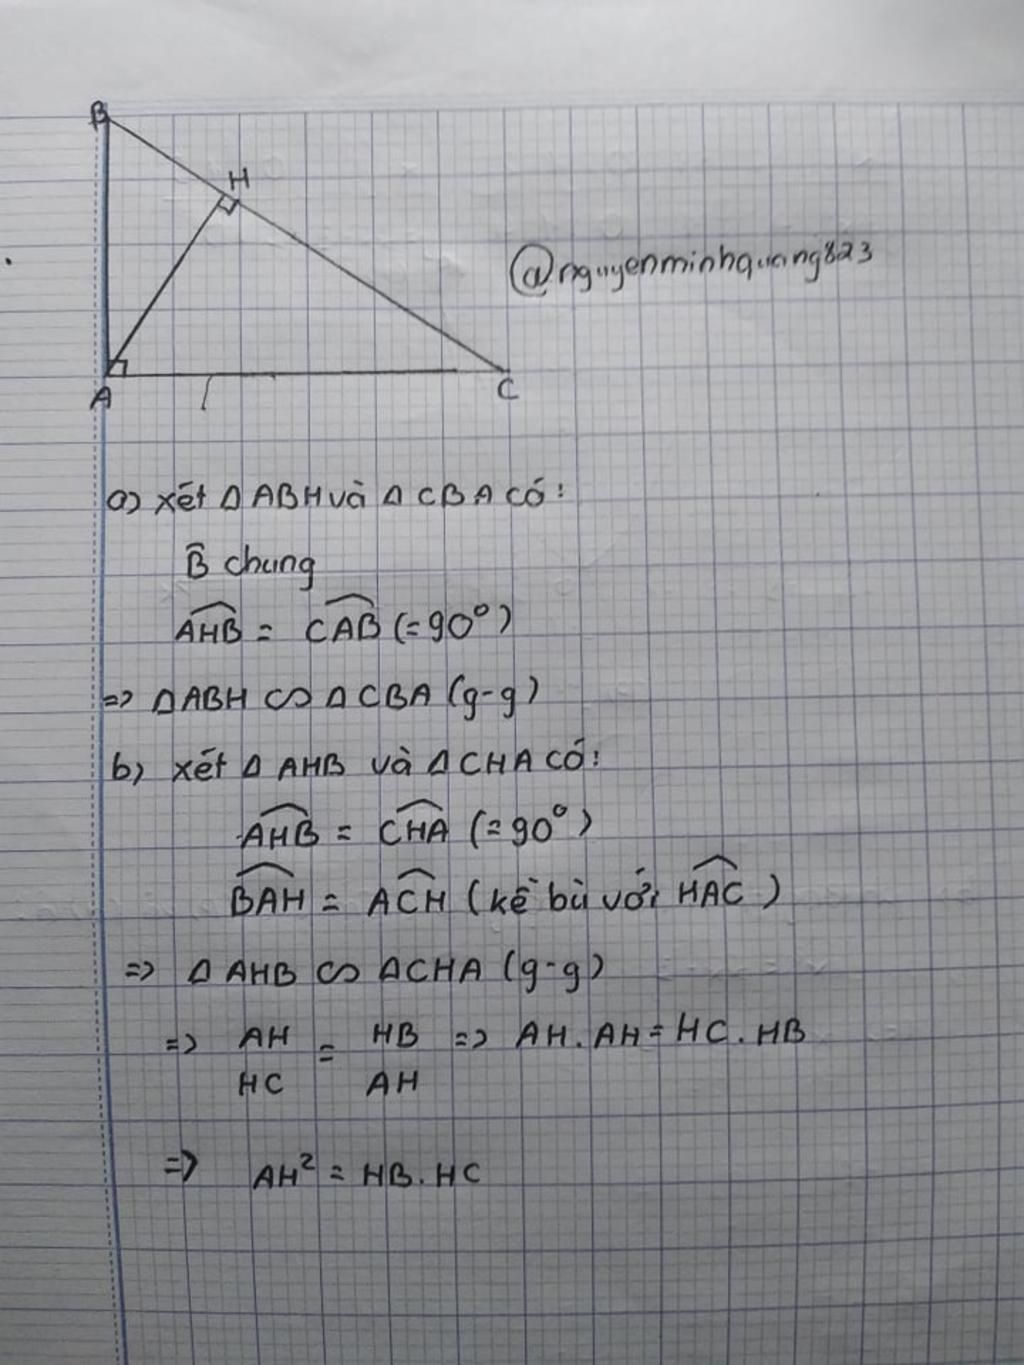 B
H
@nguyenminhquang823
A
C
a) xét Δ ABH và Δ CBA có:
B̂ chung
AHB = CAB (= 90°)
=> ΔABH ∽ ΔCBA (g-g)
b) xét Δ AHB và ΔCHA có:
AHB = CHA (= 90°)
BAH = ACH (kề bù với HAC)
=> Δ AHB ∽ ΔCHA (g-g)
=> AH/HC = HB/AH => AH. AH = HC. HB
=> AH² = HB. HC